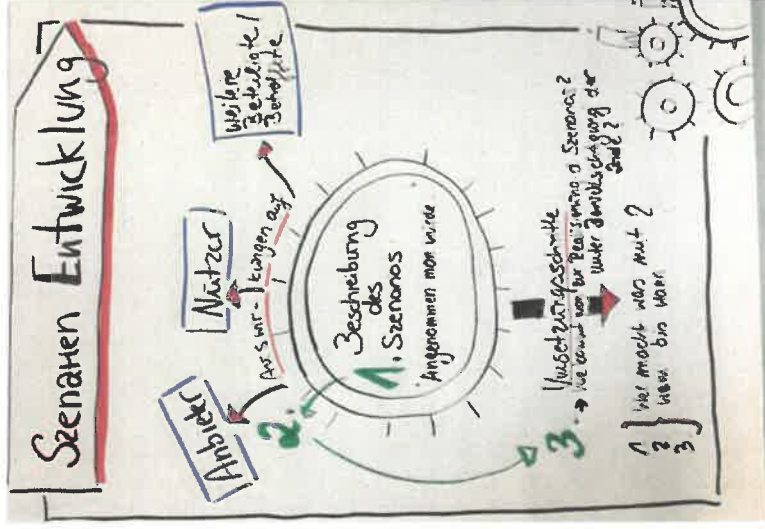 Szenarien Entwicklung
Anbieter
Nutzer
weitere
Beteiligte /
Betroffene
Auswir-kungen auf
2.
Beschreibung
des
1. Szenarios
Angenommen man würde
3.
Umsetzungsschritte
→ wie kommt man zur Realisierung d Szenarios?
unter Berücksichtigung der
1
2
3
Wer macht was mit ?
wem bis wann